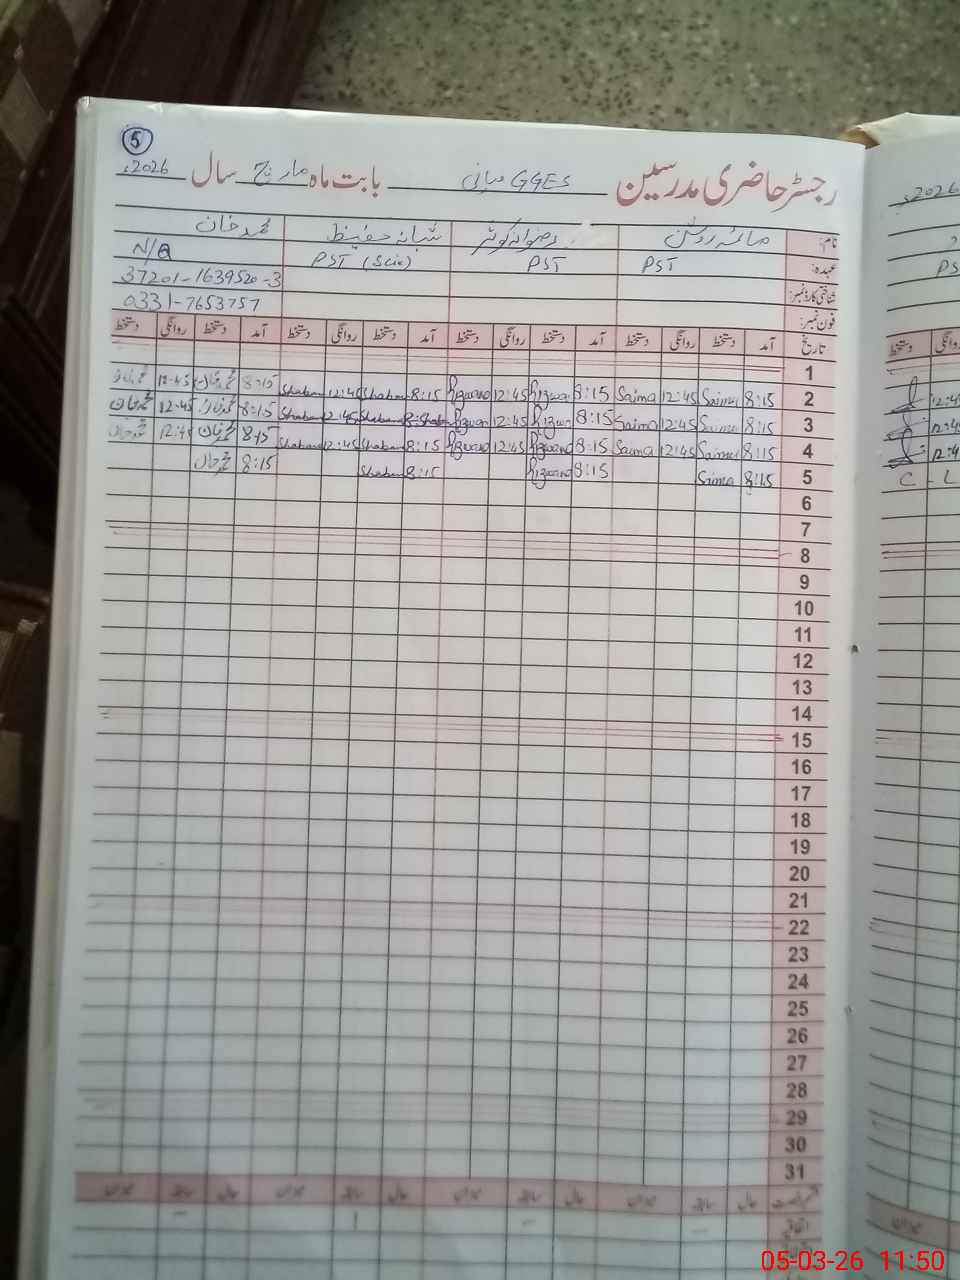 5
رجسٹر حاضری مدرسین GGES میانی بابت ماہ مارچ سال 2026ء
نام: صائمہ روشن رضوانہ کوثر شبانہ حفیظ محمد خان
عہدہ: PST PST PST (Scie) N/Q
شناختی کارڈ نمبر: 37201-1639520-3
فون نمبر: 0331-7653757
تاریخ آمد دستخط روانگی دستخط آمد دستخط روانگی دستخط آمد دستخط روانگی دستخط آمد دستخط روانگی دستخط
1
2 8:15 Saima 12:45 Saima 8:15 Rizwana 12:45 Rizwana 8:15 Shabana 12:45 Shabana 8:15 محمد خان 12:45 محمد خان
3 8:15 Saima 12:45 Saima 8:15 Rizwana 12:45 Rizwana 8:15 Shabana 12:45 Shabana 8:15 محمد خان 12:45 محمد خان
4 8:15 Saima 12:45 Saima 8:15 Rizwana 12:45 Rizwana 8:15 Shabana 12:45 Shabana 8:15 محمد خان 12:45 محمد خان
5 8:15 Sima 8:15 Rizwana 8:15 Shabana 8:15 محمد خان
6
7
8
9
10
11
12
13
14
15
16
17
18
19
20
21
22
23
24
25
26
27
28
29
30
31
حال سابقہ میزان حال سابقہ میزان حال سابقہ میزان حال سابقہ میزان
اتفاقیہ
2026ء
PS
روانگی دستخط
12:4
12:4
12:4
C - L
میزان
05-03-26 11:50